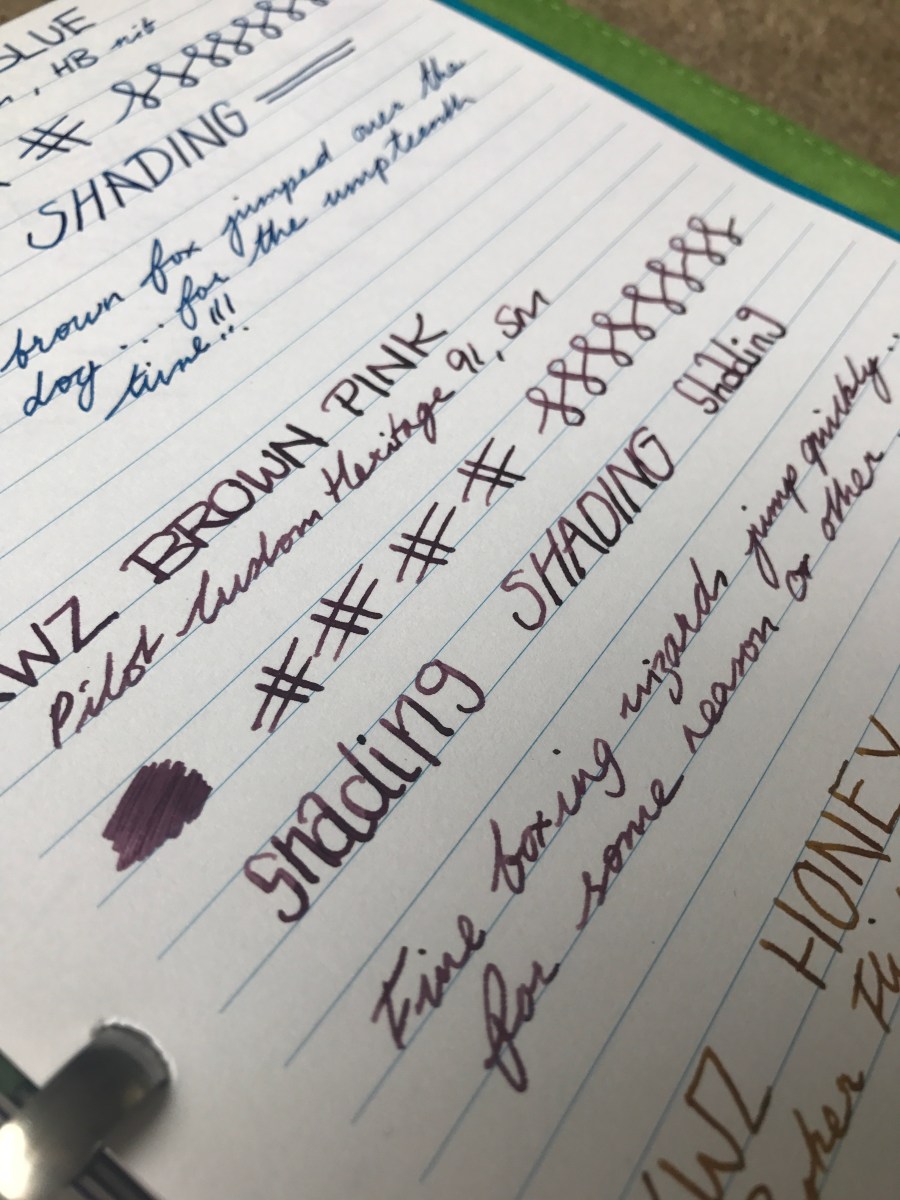 BLUE
, HB nib
SHADING
brown fox jumped over the
dog... for the umpteenth
time...!!!
KWZ BROWN PINK
Pilot Custom Heritage 912, SM
Shading SHADING Shading
Fine boxing wizards jump quickly...
for some reason or other
KWZ HONEY